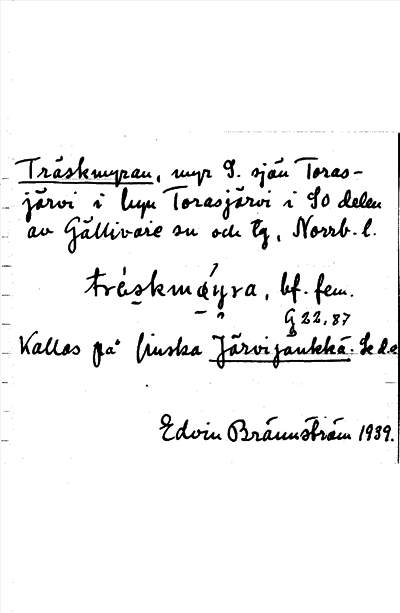 Träskmyran, myr S. sjön Toras-
järvi i byn Torasjärvi i SO delen
av Gällivare sn och tg, Norrb. l.
bf. fem.
G 22,87
Kallas på finska Järvijänkkä. Se d.o
Edvin Brännström 1939.